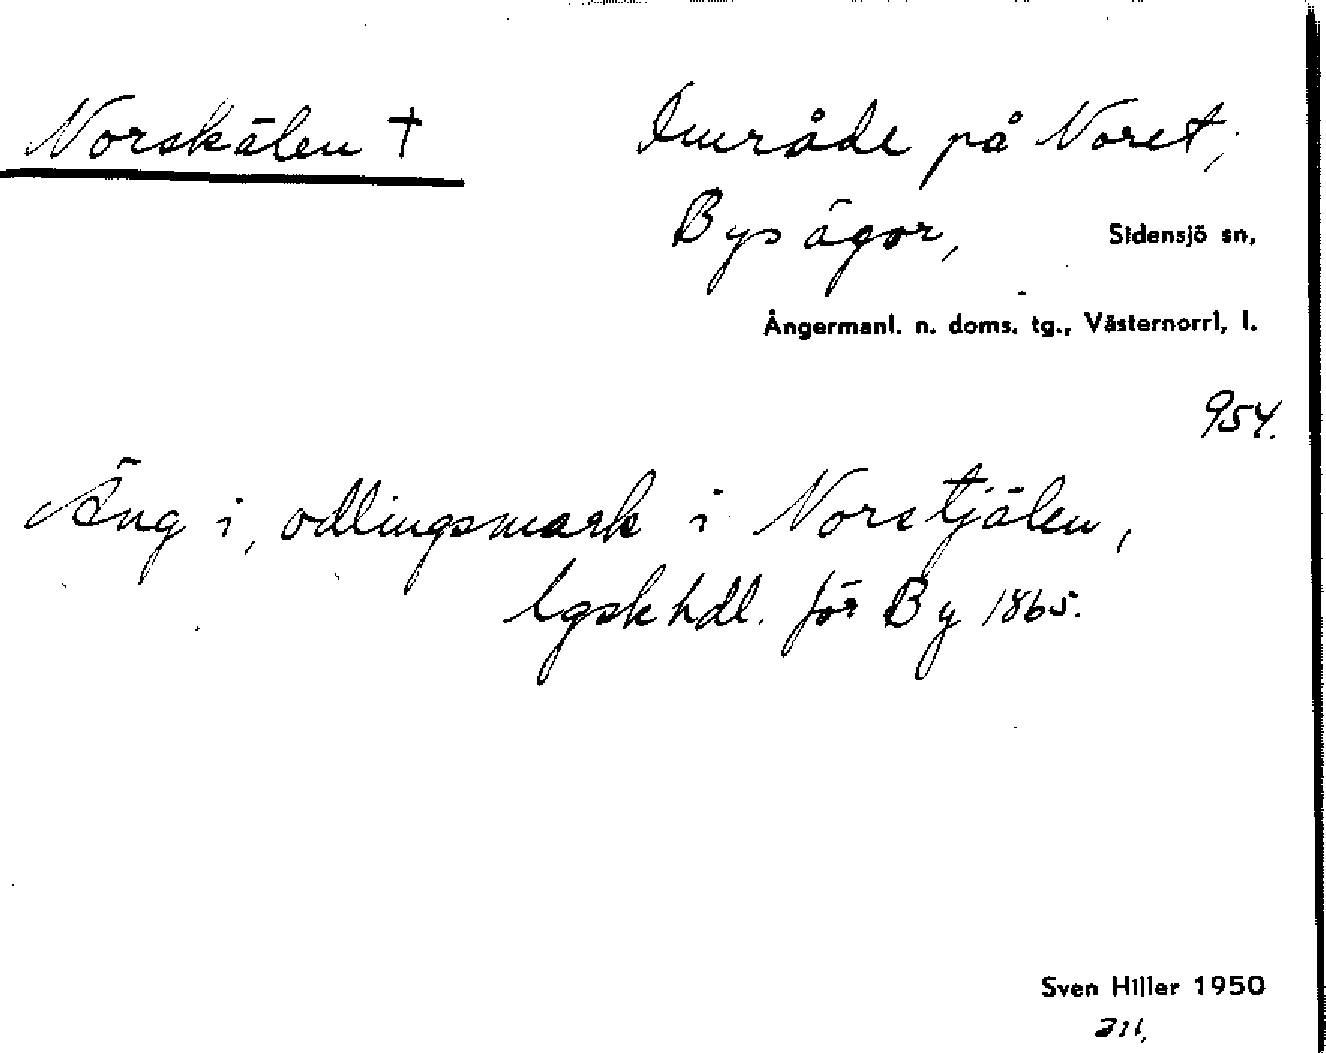 Norskälen †
Område på Noret,
Bys ägor,
Sidensjö sn,
Ångermanl. n. doms. tg., Västernorrl. l.
954.
Äng i, odlingsmark i Norstjälen,
lgskhdl. för By 1865.
Sven Hiller 1950